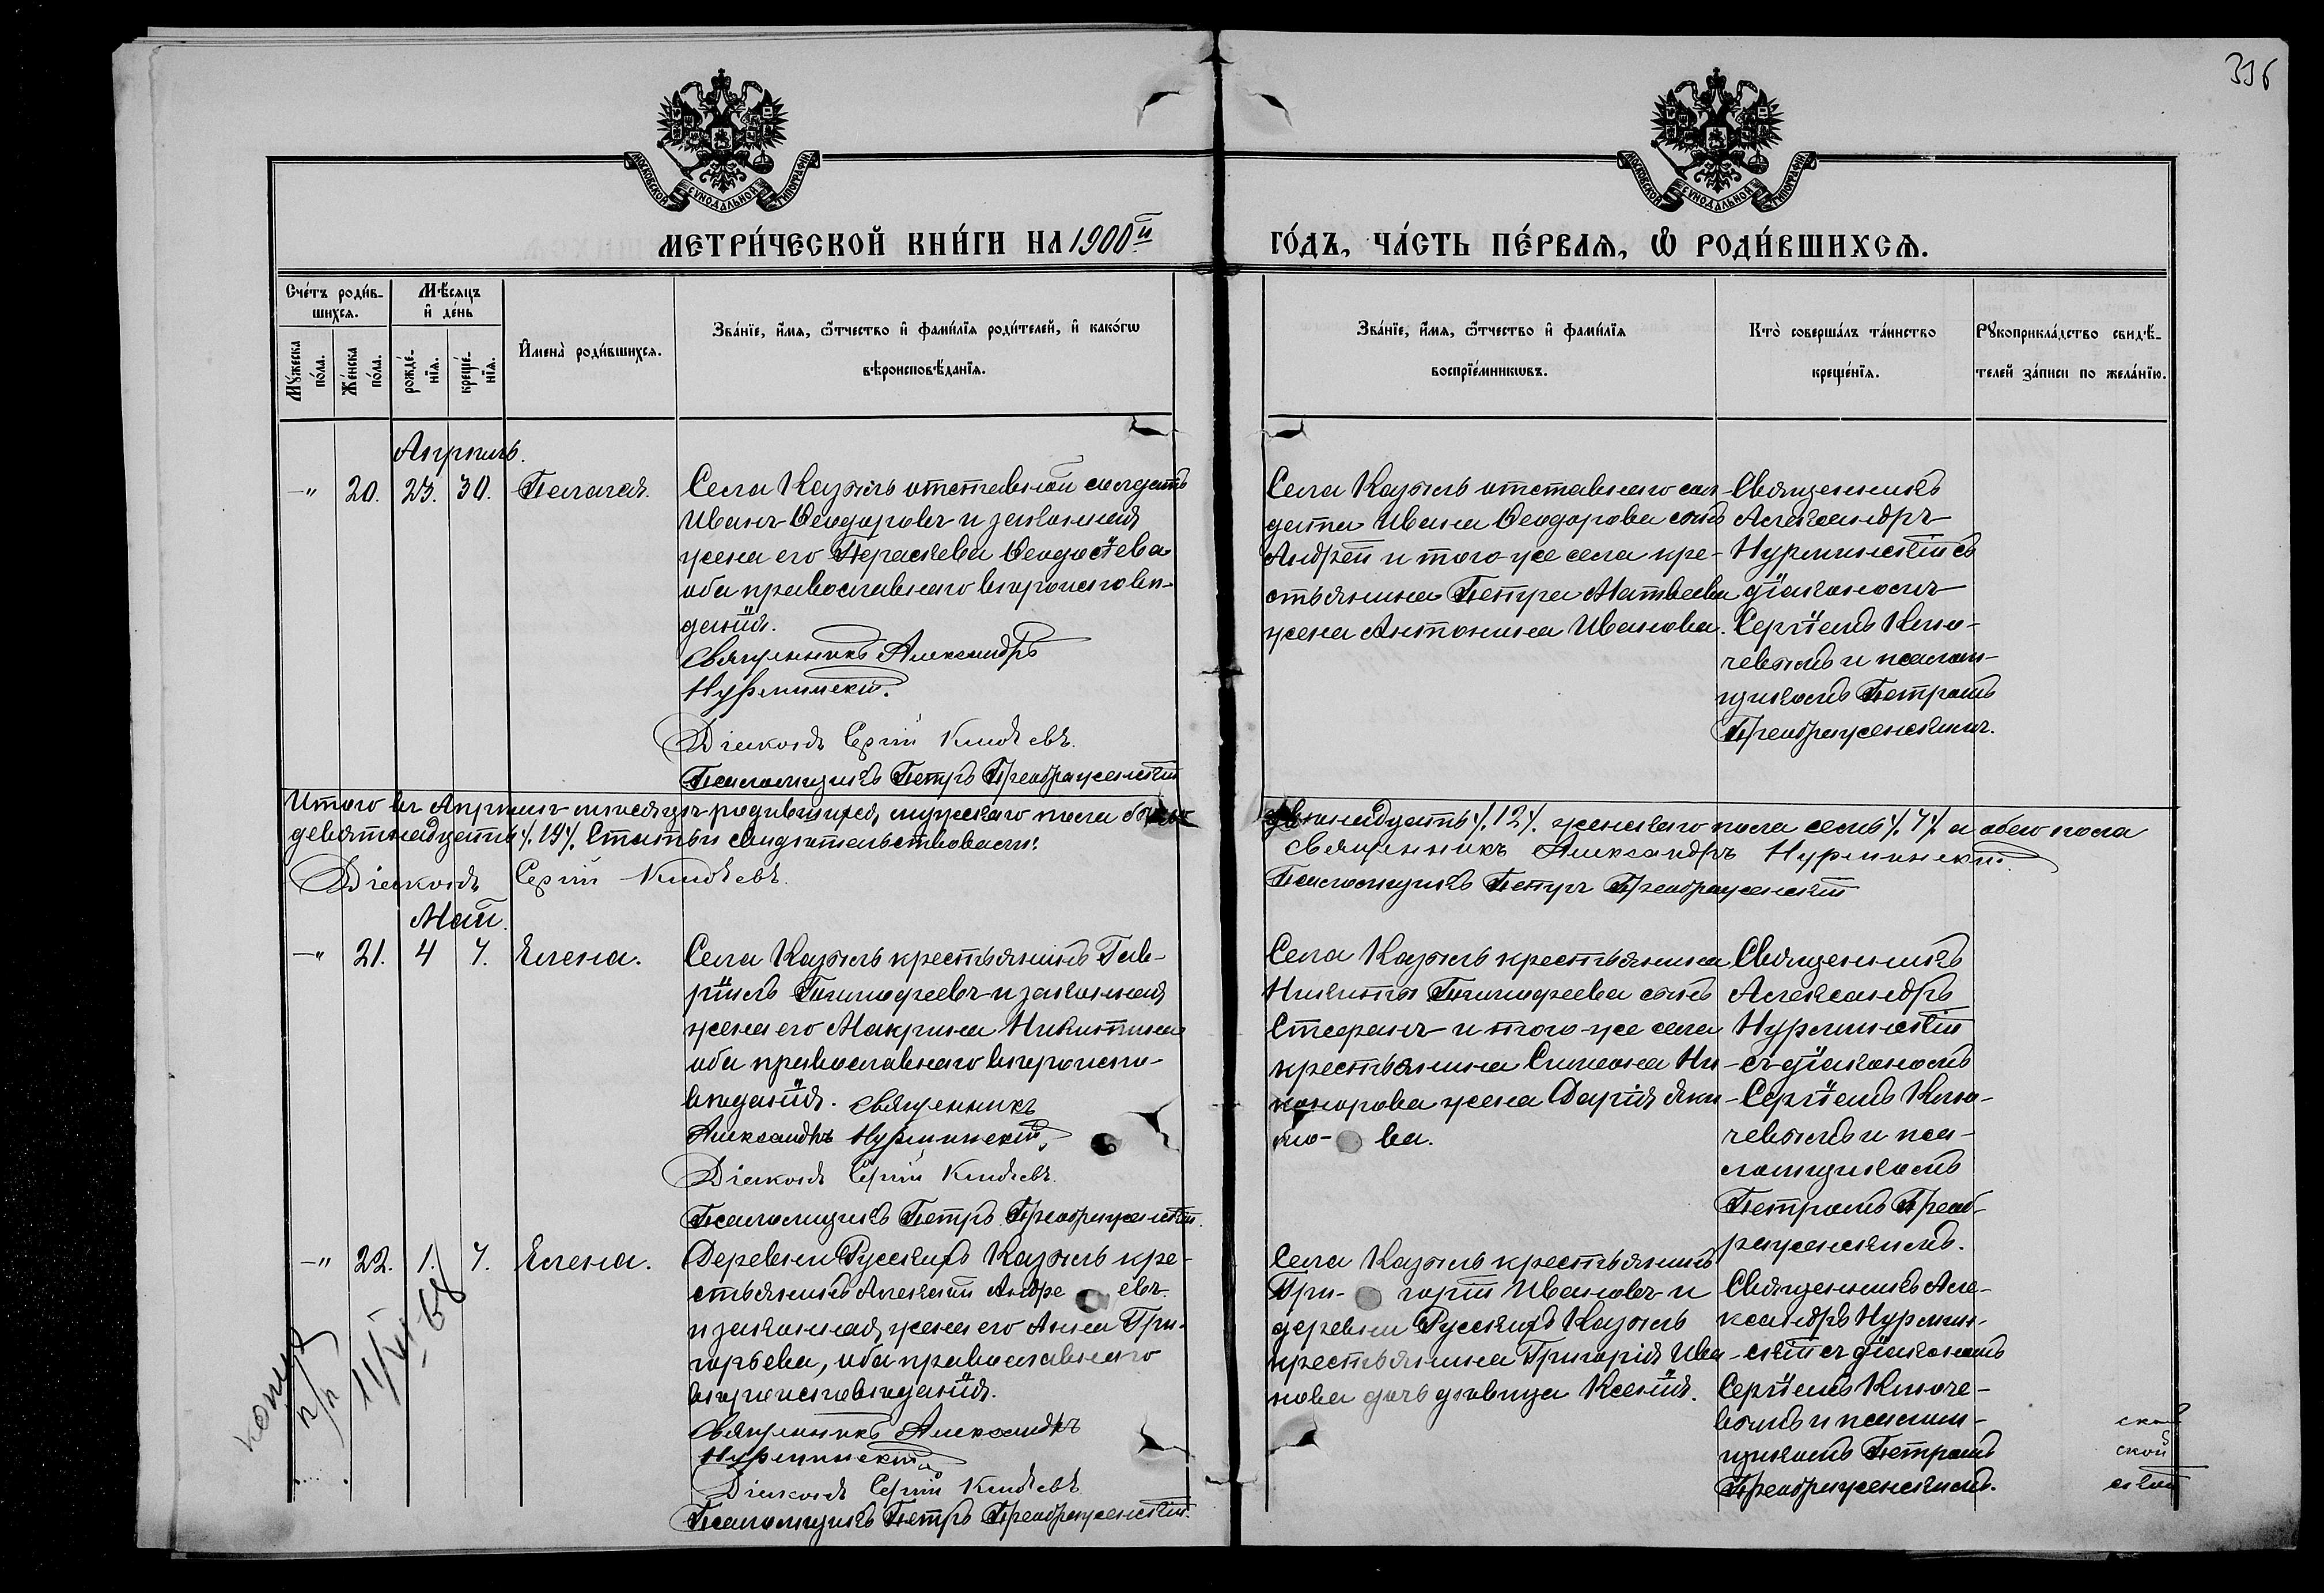 336
МОСКОВСКОЙ СѴНОДАЛЬНОЙ ТИПОГРАФІИ
МОСКОВСКОЙ СѴНОДАЛЬНОЙ ТИПОГРАФІИ
МЕТРИ́ЧЕСКОЙ КНИ́ГИ НА 1900й
ГО́ДЪ, ЧА́СТЬ ПЕ́РВАѦ, Ѡ҆ РОДИ́ВШИХСѦ.
Сче́тъ роди́в-
шихсѧ.
Мѣ́сѧцъ
и҆ де́нь
Мꙋ́жеска
по́ла.
Же́нска
по́ла.
рожде́-
нїѧ.
креще́-
нїѧ.
И҆мена̀ роди́вшихсѧ.
Зва́нїе, и҆́мѧ, ѻ҆́тчество и҆ фами́лїѧ роди́телей, и҆ како́гѡ
вѣроисповѣ́данїѧ.
Зва́нїе, и҆́мѧ, ѻ҆́тчество и҆ фами́лїѧ
воспрїе́мникѡвъ.
Кто̀ соверша́лъ та́инство
креще́нїѧ.
Рꙋкоприкла́дство свидѣ́-
телей за́писи по жела́нїю.
Апрѣль.
–" 20. 23. 30. Пелагея.
Села Каzыль отставной солдатъ
Иванъ Ѳеодоровъ и законная
жена его Параскева Ѳеодосіева
оба православнаго вѣроисповѣ-
данія.
Священникъ Александръ
Нурминскій.
Діаконъ Сергій Ключевъ.
Псаломщикъ Петръ Преображенскій
Села Каzыль отставнаго сол-
дата Ивана Ѳеодорова сынъ
Андрей и того-же села кре-
стьянина Петра Матвеева
жена Антонина Иванова.
Священникъ
Александръ
Нурминскій съ
діакономъ
Сергіемъ Клю-
чевымъ и псалом-
щикомъ Петромъ
Преображенскимъ.
Итого въ Апрѣлѣ мѣсяцѣ родившихся, мужескаго пола было
двѣнадцать /.12/. женскаго пола семь /.7/. а обего пола
девятнадцать /.19/. Статьи свидѣтельствовали:
Священникъ Александръ Нурминскій
Діаконъ Сергій Ключевъ.
Псаломщикъ Петръ Преображенскій
Май.
–" 21. 4 7. Елена.
Села Каzыль крестьянинъ Гав-
ріилъ Тимофеевъ и законная
жена его Макрина Никитина
оба православнаго вѣроиспо-
вѣданія. Священникъ
Александръ Нурминскій
Діаконъ Сергій Ключевъ.
Псаломщикъ Петръ Преображенскій.
Села Каzыль крестьянина
Никиты Тимофеева сынъ
Стефанъ и того-же села
крестьянина Симона Ни-
канорова жена Дарія Яки-
мо- ва.
Священникъ
Александръ
Нурминскій
съ діакономъ
Сергіемъ Клю-
чевымъ и пса-
ломщикомъ
Петромъ Преоб-
раженскимъ.
–" 22. 1. 7. Елена.
Деревни Русскихъ Каzыль кре-
стьянинъ Алексій Андре евъ
и законная жена его Анна Гри-
горьева, оба православнаго
вѣроисповѣданія.
Священникъ Александръ
Нурминскій
Діаконъ Сергій Ключевъ
Псаломщикъ Петръ Преображенскій.
Села Каzыль крестьянинъ
Гри- горій Ивановъ и
деревни Русскихъ Каzыль
крестьянина Григорія Ива-
нова дочь дѣвица Ксенія.
Священникъ Але-
ксандръ Нурмин-
скій съ діакономъ
Сергіемъ Ключе-
вымъ и псалом-
щикомъ Петромъ
Преображенскимъ.
ской
ской
ской
11/VI-68